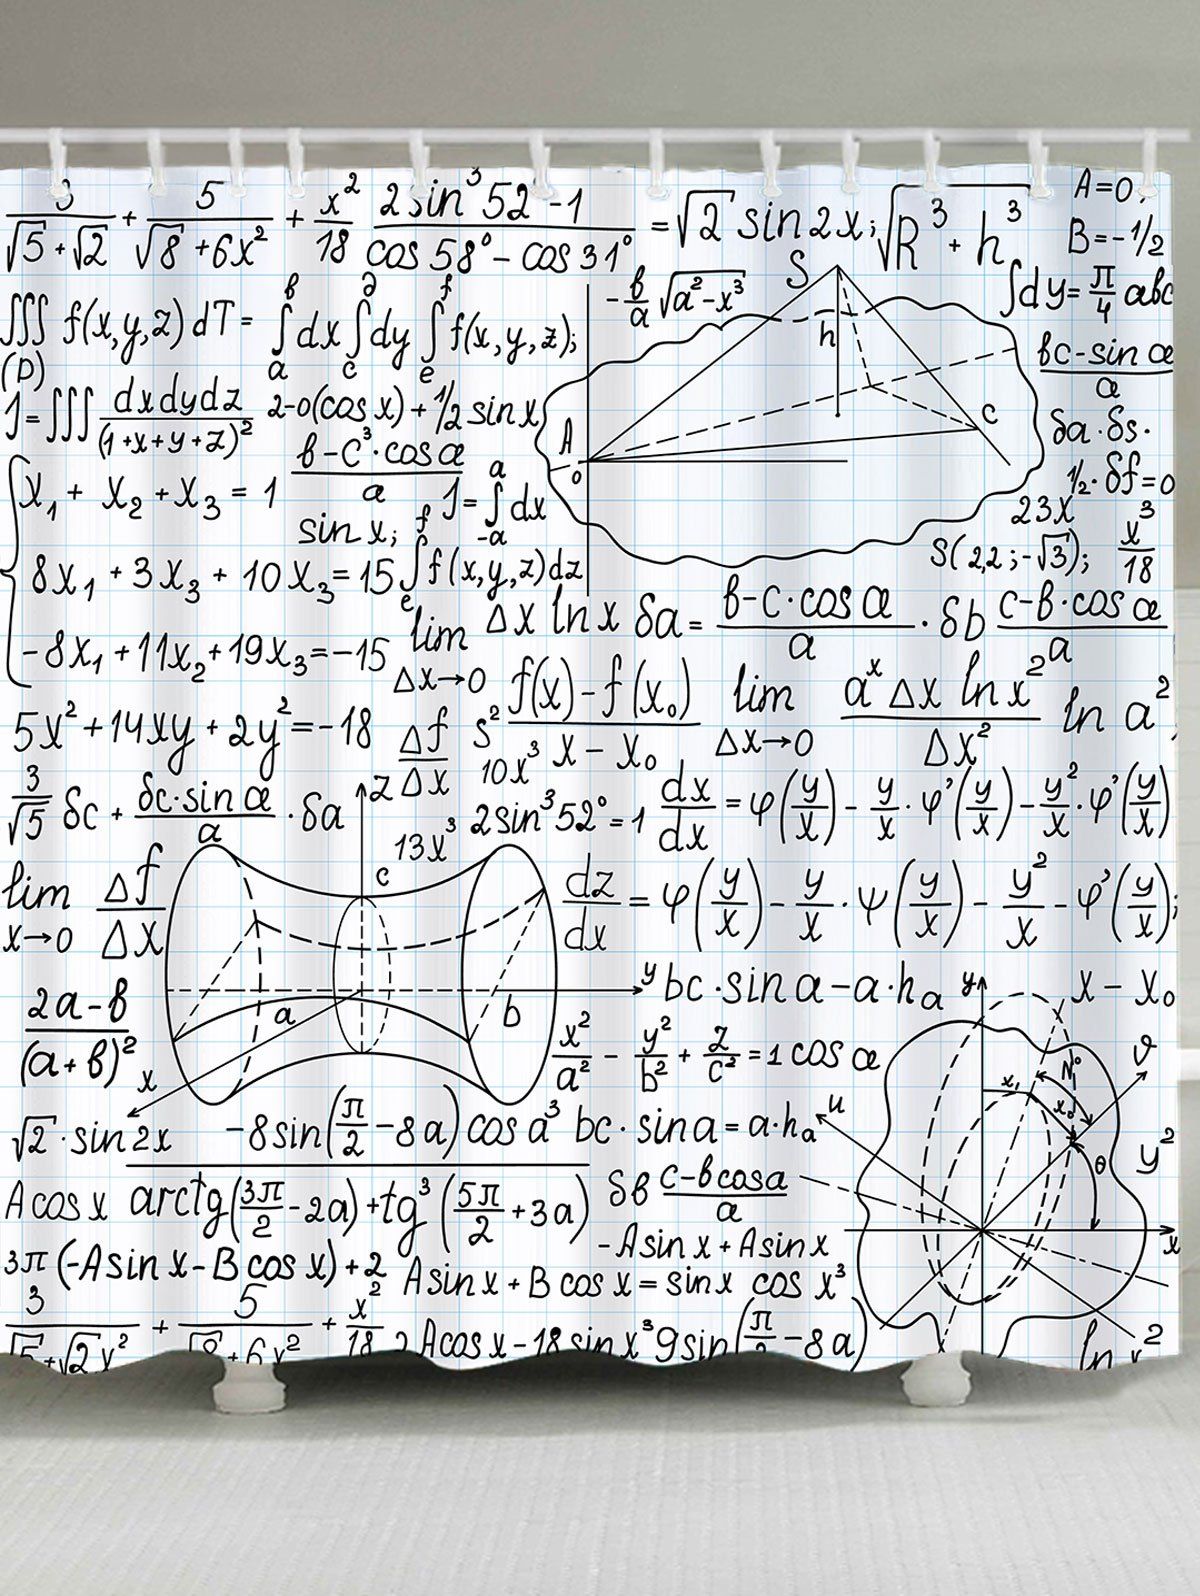 3/(√5+√2) + 5/(√8+6x²) + x²/18 (2sin³52°-1)/(cos58°-cos31°) = √2 sin2x; √(R³+h³)
A=0,
B=-1/2
∭ f(x,y,z)dT= ∫ₐᵇ dx ∫_c^∂ dy ∫ₑᶠ f(x,y,z);
(D)
-b/a √(a²-x³)
S
h
A
0
C
∫dy=π/4 abc
(bc-sin α)/a
J=∭ dxdydz/(1+x+y+z)² 2-0(cos x)+1/2 sin x
δa·δs·
x₁ + x₂ + x₃ = 1
(b-c³·cos α)/a
J=∫₋ₐᵃ dx
1/2·δf=0
sin x;
23x
8x₁ + 3x₃ + 10x₃ = 15 ∫ₑᶠ f(x,y,z)dz
S(2,2;-√3); x³/18
-8x₁ + 11x₂ + 19x₃ = -15
lim Δx→0 Δx ln x δa = (b-c·cos α)/a · δb (c-b·cos α)/a
5x²+14xy+2y²=-18 Δf/Δx s² (f(x)-f(x₀))/(x-x₀) lim Δx→0 (aˣ Δx ln x²)/Δx² a ln a²,
10x³
3/√5 δc + (δc·sin α)/a · δa
z
13x³
2sin³52°=1 dx/dx = φ(y/x) - y/x·φ'(y/x) - y²/x·φ'(y/x)
lim x→0 Δf/Δx
c
dz/dx = φ(y/x) - y/x·ψ(y/x) - y²/x - φ'(y/x);
(2a-b)/(a+b)²
a
b
y
x
bc·sin a-a·hₐ
y
x-x₀
x²/a² - y²/b² + z/c² = 1 cos α
x₁
N°
ϑ
x₀
√2·sin2x -8sin(π/2-8a)cos a³ bc·sin a=a·hₐ
u
θ
y²
A cos x arctg(3π/2-2a)+tg³(5π/2+3a) δb (c-bcosa)/a
x
3π(-A sin x-B cos x)+2/2 -A sin x+A sin x
A sin x+B cos x=sin x cos x³
3/(√5+√2x²) + 5/(√8+6x²) + x²/18 2 A cos x-18 sin x³ 9sin(π/2-8a)
ln x²